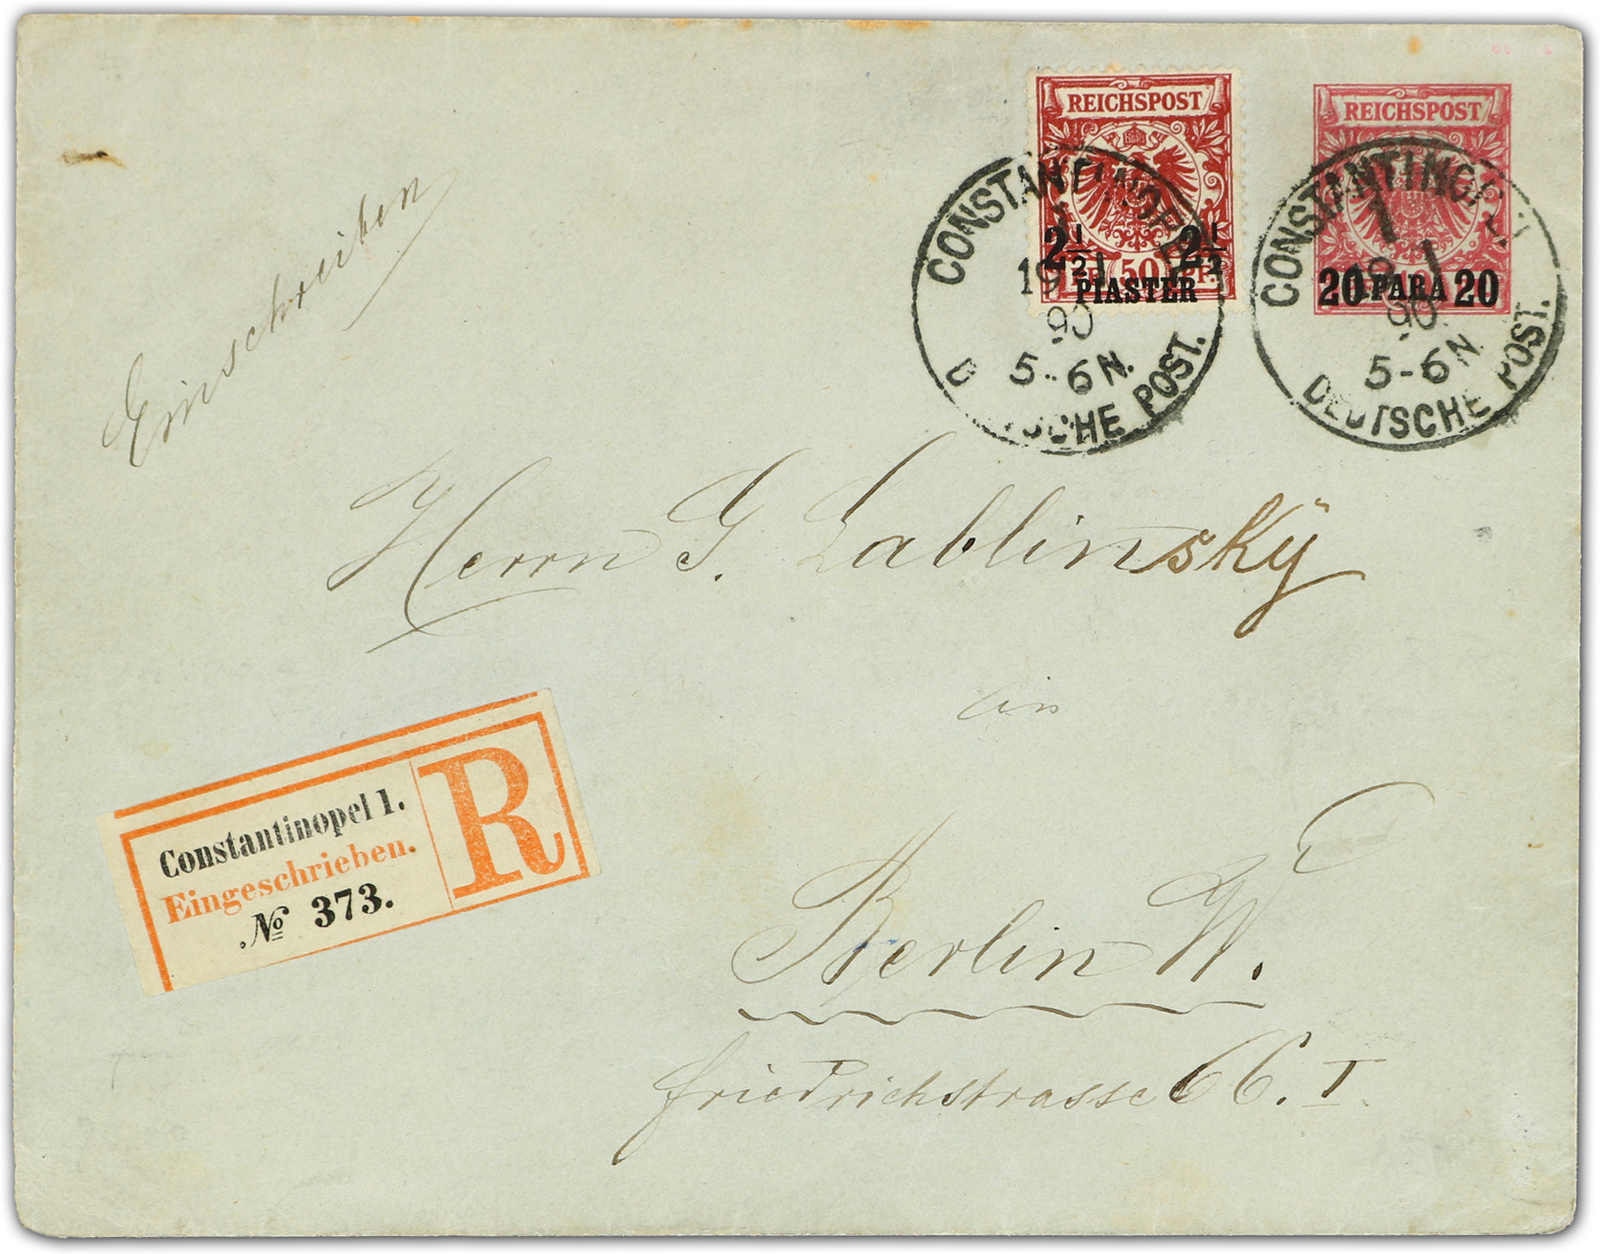 REICHSPOST
50
2 1/2 2 1/2
PIASTER
REICHSPOST
20 PARA 20
CONSTANTINOPEL
1
90
5-6N.
DEUTSCHE POST.
CONSTANTINOPEL
1
90
5-6N.
DEUTSCHE POST.
Einschreiben
Herrn J. Lablinsky
in
Constantinopel 1.
Eingeschrieben.
№ 373.
R
Berlin W.
Friedrichstrasse 66. I